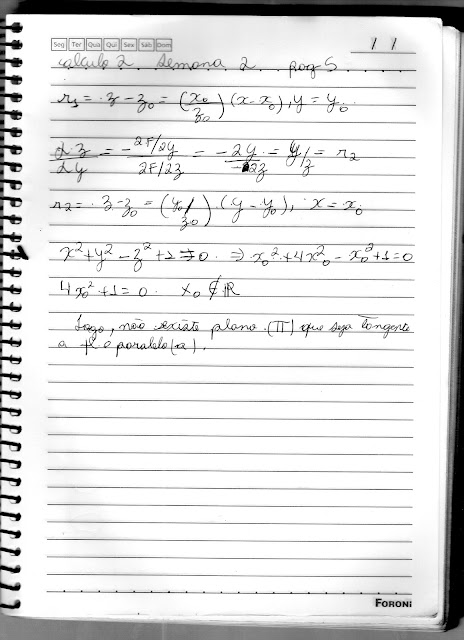 Seg Ter Qua Qui Sex Sáb Dom
/ /
calculo 2 semana 2 pag 5
r₁ = z - z₀ = (x₀/z₀) (x - x₀), y = y₀
∂z/∂y = - ∂F/∂y / ∂F/∂z = - 2y / -2z = y/z = r₂
r₂ = z - z₀ = (y₀/z₀) (y - y₀), x = x₀
x² + y² - z² + 1 = 0 ⇒ x₀² + 4x₀² - x₀² + 1 = 0
4x₀² + 1 = 0 x₀ ∉ ℝ
Logo, não existe plano (π) que seja tangente
a f e paralelo (a).
FORONI